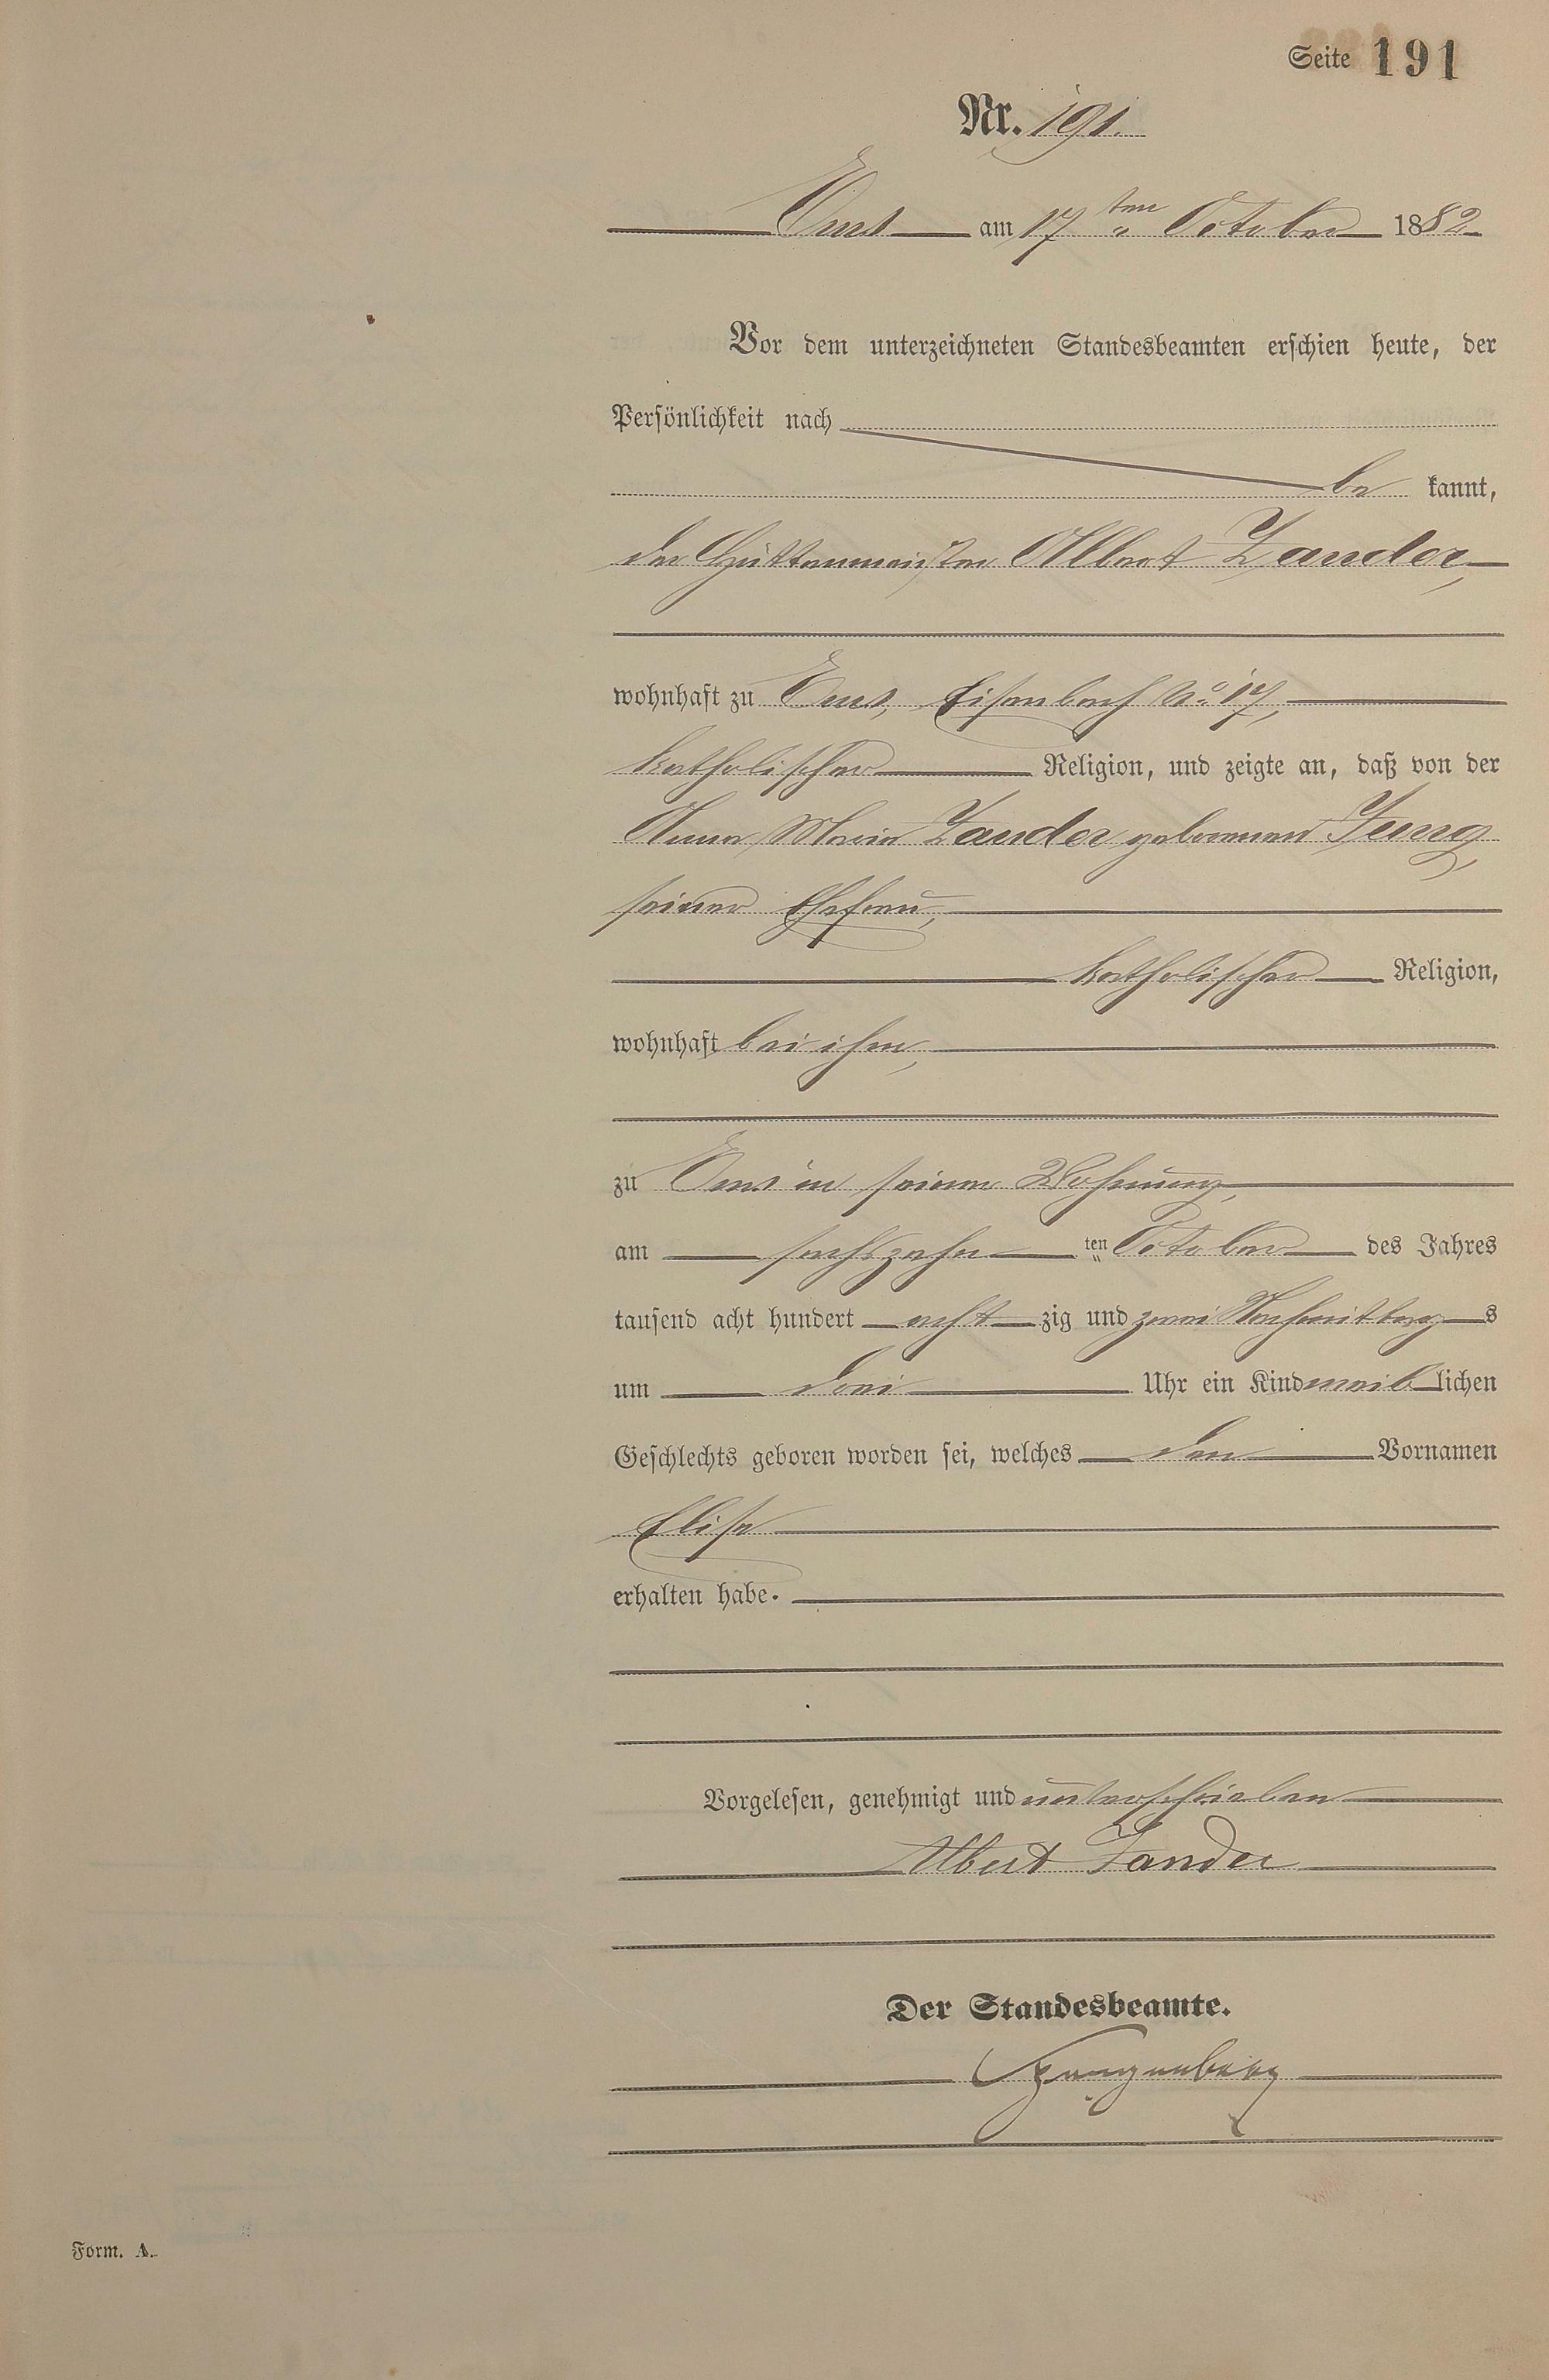 Seite 191
Nr. 191.
Ems am 17ten October 1882
Vor dem unterzeichneten Standesbeamten erschien heute, der
Persönlichkeit nach
be kannt,
der Hüttenmeister Albert Zander,
wohnhaft zu Ems, Eisenbach No 17,
katholischer Religion, und zeigte an, daß von der
Anna Maria Zander geborenen Jung,
seiner Ehefrau,
katholischer Religion,
wohnhaft bei ihm,
zu Ems in seiner Wohnung,
am sechszehn ten October des Jahres
tausend acht hundert acht zig und zwei Nachmittag s
um drei Uhr ein Kind weib lichen
Geschlechts geboren worden sei, welches den Vornamen
Elise
erhalten habe.
Vorgelesen, genehmigt und unterschrieben
Albert Zander
Der Standesbeamte.
Spangenberg
Form. A.